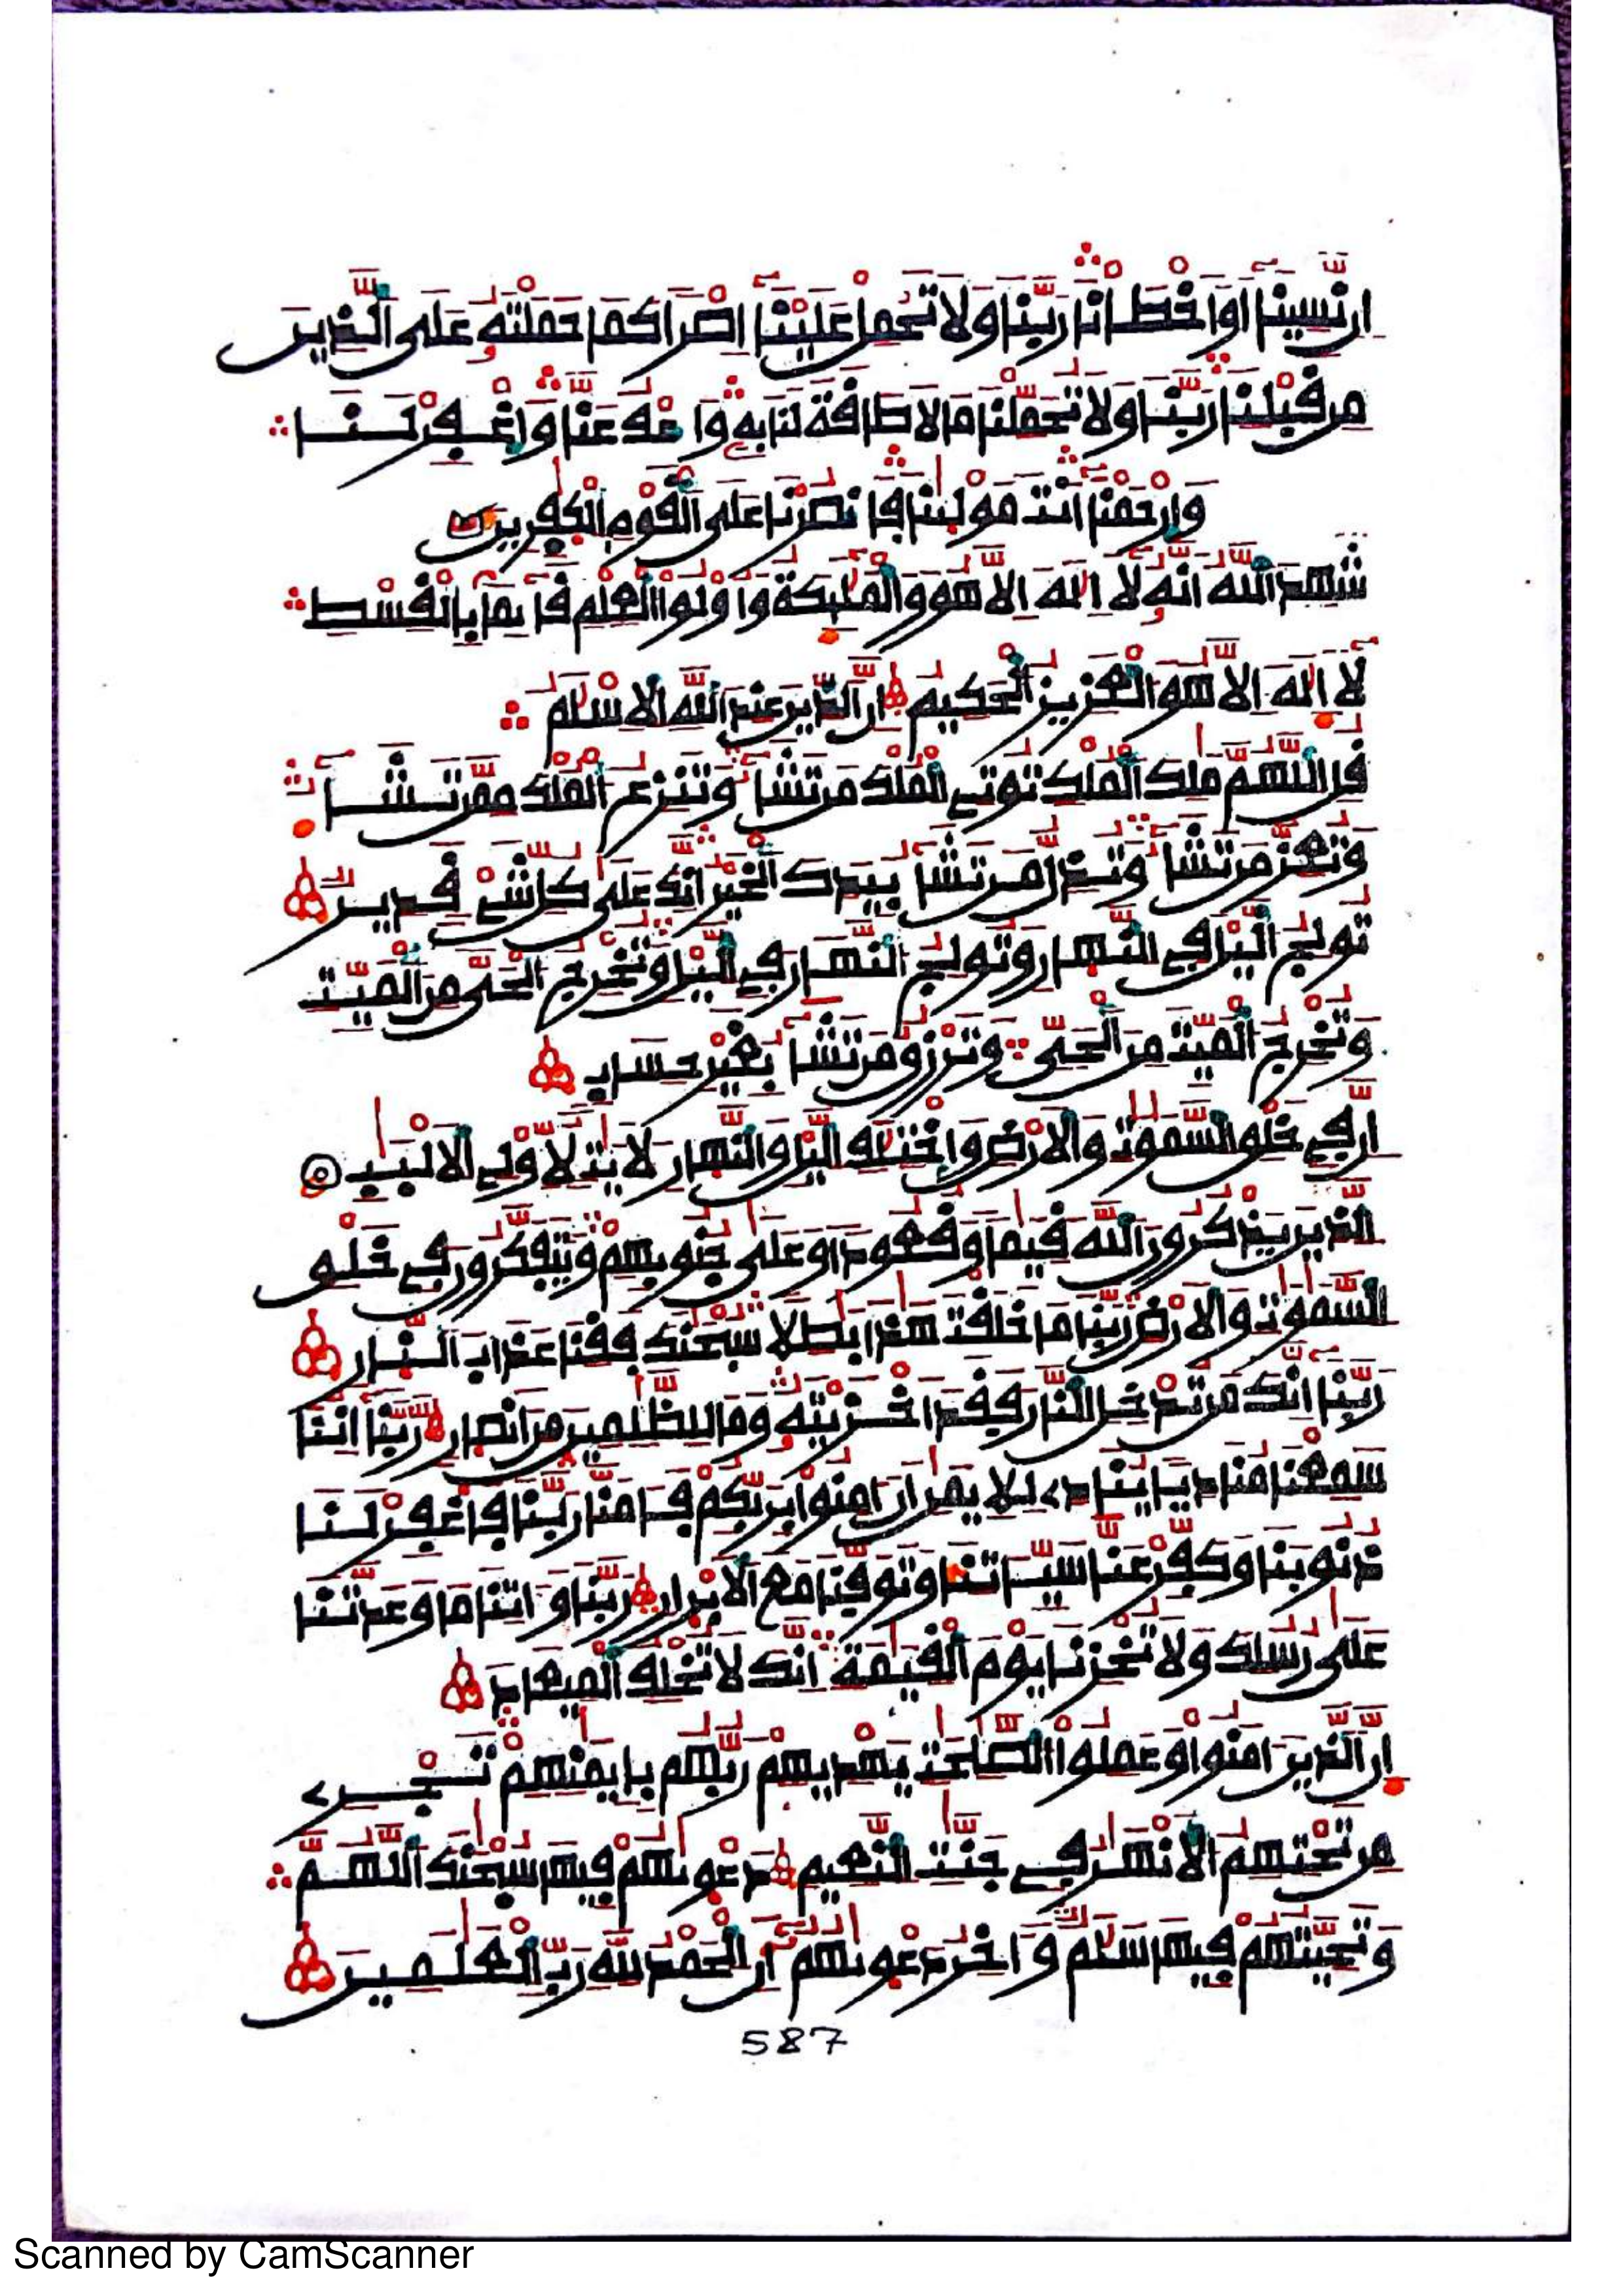 ان نسينا أو اخطأنا ربنا ولا تحمل علينا اصرا كما حملته على الذين
من قبلنا ربنا ولا تحملنا ما لا طاقة لنا به واعف عنا واغفر لنا
وارحمنا أنت مولينا فانصرنا على القوم الكفرين
شهد الله انه لا اله الا هو والمليكة وأولوا العلم قايما بالقسط
لا اله الا هو العزيز الحكيم ان الدين عند الله الاسلم
قل اللهم ملك الملك توتي الملك من تشا وتنزع الملك ممن تشا
وتعز من تشا وتذل من تشا بيدك الخير انك على كل شي قدير
تولج اليل في النهار وتولج النهار في اليل وتخرج الحي من الميت
وتخرج الميت من الحي وترزق من تشا بغير حساب
ان في خلق السموت والارض واختلف اليل والنهار لايت لاولي الالبب
الذين يذكرون الله قيما وقعودا وعلى جنوبهم ويتفكرون في خلق
السموت والارض ربنا ما خلقت هذا بطلا سبحنك فقنا عذاب النار
ربنا انك من تدخل النار فقد اخزيته وما للظلمين من انصار ربنا اننا
سمعنا مناديا ينادي للايمن ان امنوا بربكم فامنا ربنا فاغفر لنا
ذنوبنا وكفر عنا سياتنا وتوفنا مع الابرار ربنا واتنا ما وعدتنا
على رسلك ولا تخزنا يوم القيمة انك لا تخلف الميعاد
ان الذين امنوا وعملوا الصلحت يهديهم ربهم بايمنهم تجري
من تحتهم الانهر في جنت النعيم دعويهم فيها سبحنك اللهم
وتحيتهم فيها سلم واخر دعويهم أن الحمد لله رب العلمين
587
Scanned by CamScanner